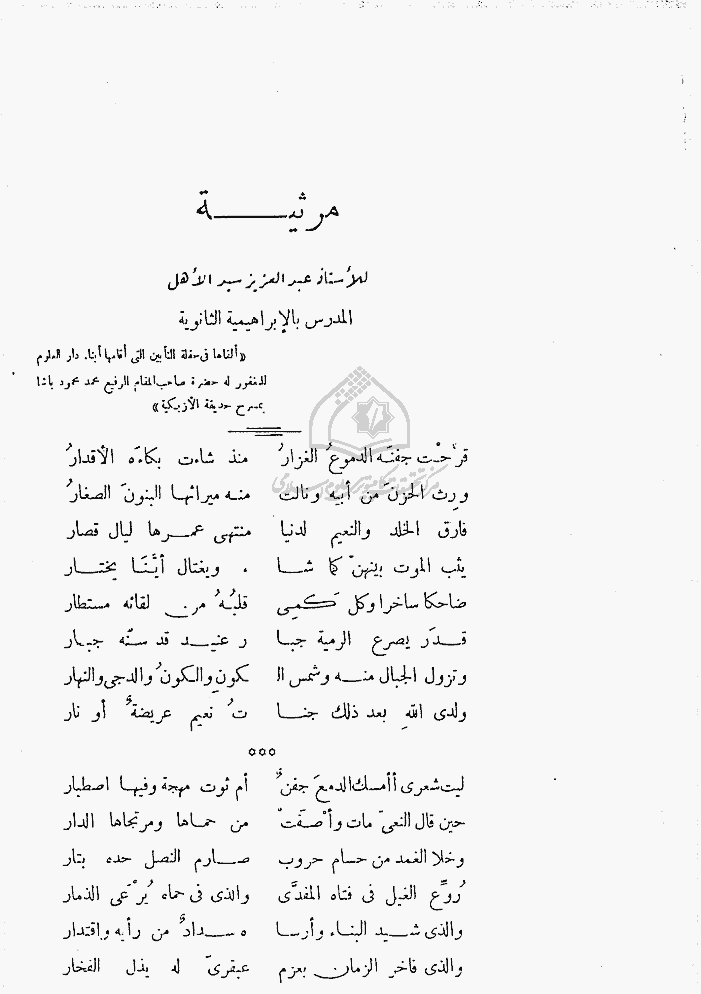 مرثيــة
للأستاذ عبد العزيز سيد الأهل
المدرس بالإبراهيمية الثانوية
«ألقاها فى حفلة التأبين التى أقامها أبناء دار العلوم
للمغفور له حضرة صاحب المقام الرفيع محمد محمود باشا
بمسرح حديقة الأزبكية»
قرَحْت جفنَه الدموعُ الغزارُ منذ شاءت بكاءَه الأقدارُ
ورث الحزنَ من أبيه ونالت منه ميراثها البنونَ الصغارُ
فارق الخلد والنعيم لدنيا منتهى عمرها ليال قصار
يثب الموت بينهنّ كما شا ء ويغتال أيَّنَا يختار
ضاحكا ساخرا وكل كَمِى قلبُهُ من لقائه مستطار
قدَر يصرع الرمية جبا ر عنيد قد سنّه جبار
وتزول الجبال منه وشمس ال كونِ والكونُ والدجى والنهار
ولدى اللهِ بعد ذلك جنا تُ نعيم عريضةٌ أو نار
ه ه ه
ليت شعرى أأمسك الدمعَ جفنٌ أم ثوت مهجة وفيها اصطبار
حين قال النعىّ مات وأصْفَتْ من حماها ومرتجاها الدار
وخلا الغمد من حسام حروب صارم النصل حده بتار
رُوِّع الغيل فى فتاه المفدَّى والذى فى حماه يُرْعَى الذمار
والذى شيد البناء وأرسا ه سدادٌ من رأيه واقتدار
والذى فاخر الزمان بعزم عبقرىّ له يذل الفخار